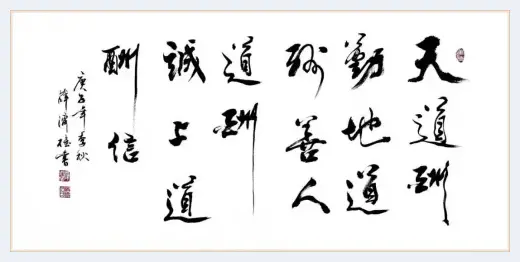 天道酬
勤地道
酬善人
道酬
誠上道
酬信
庚子年季秋
薛澤書